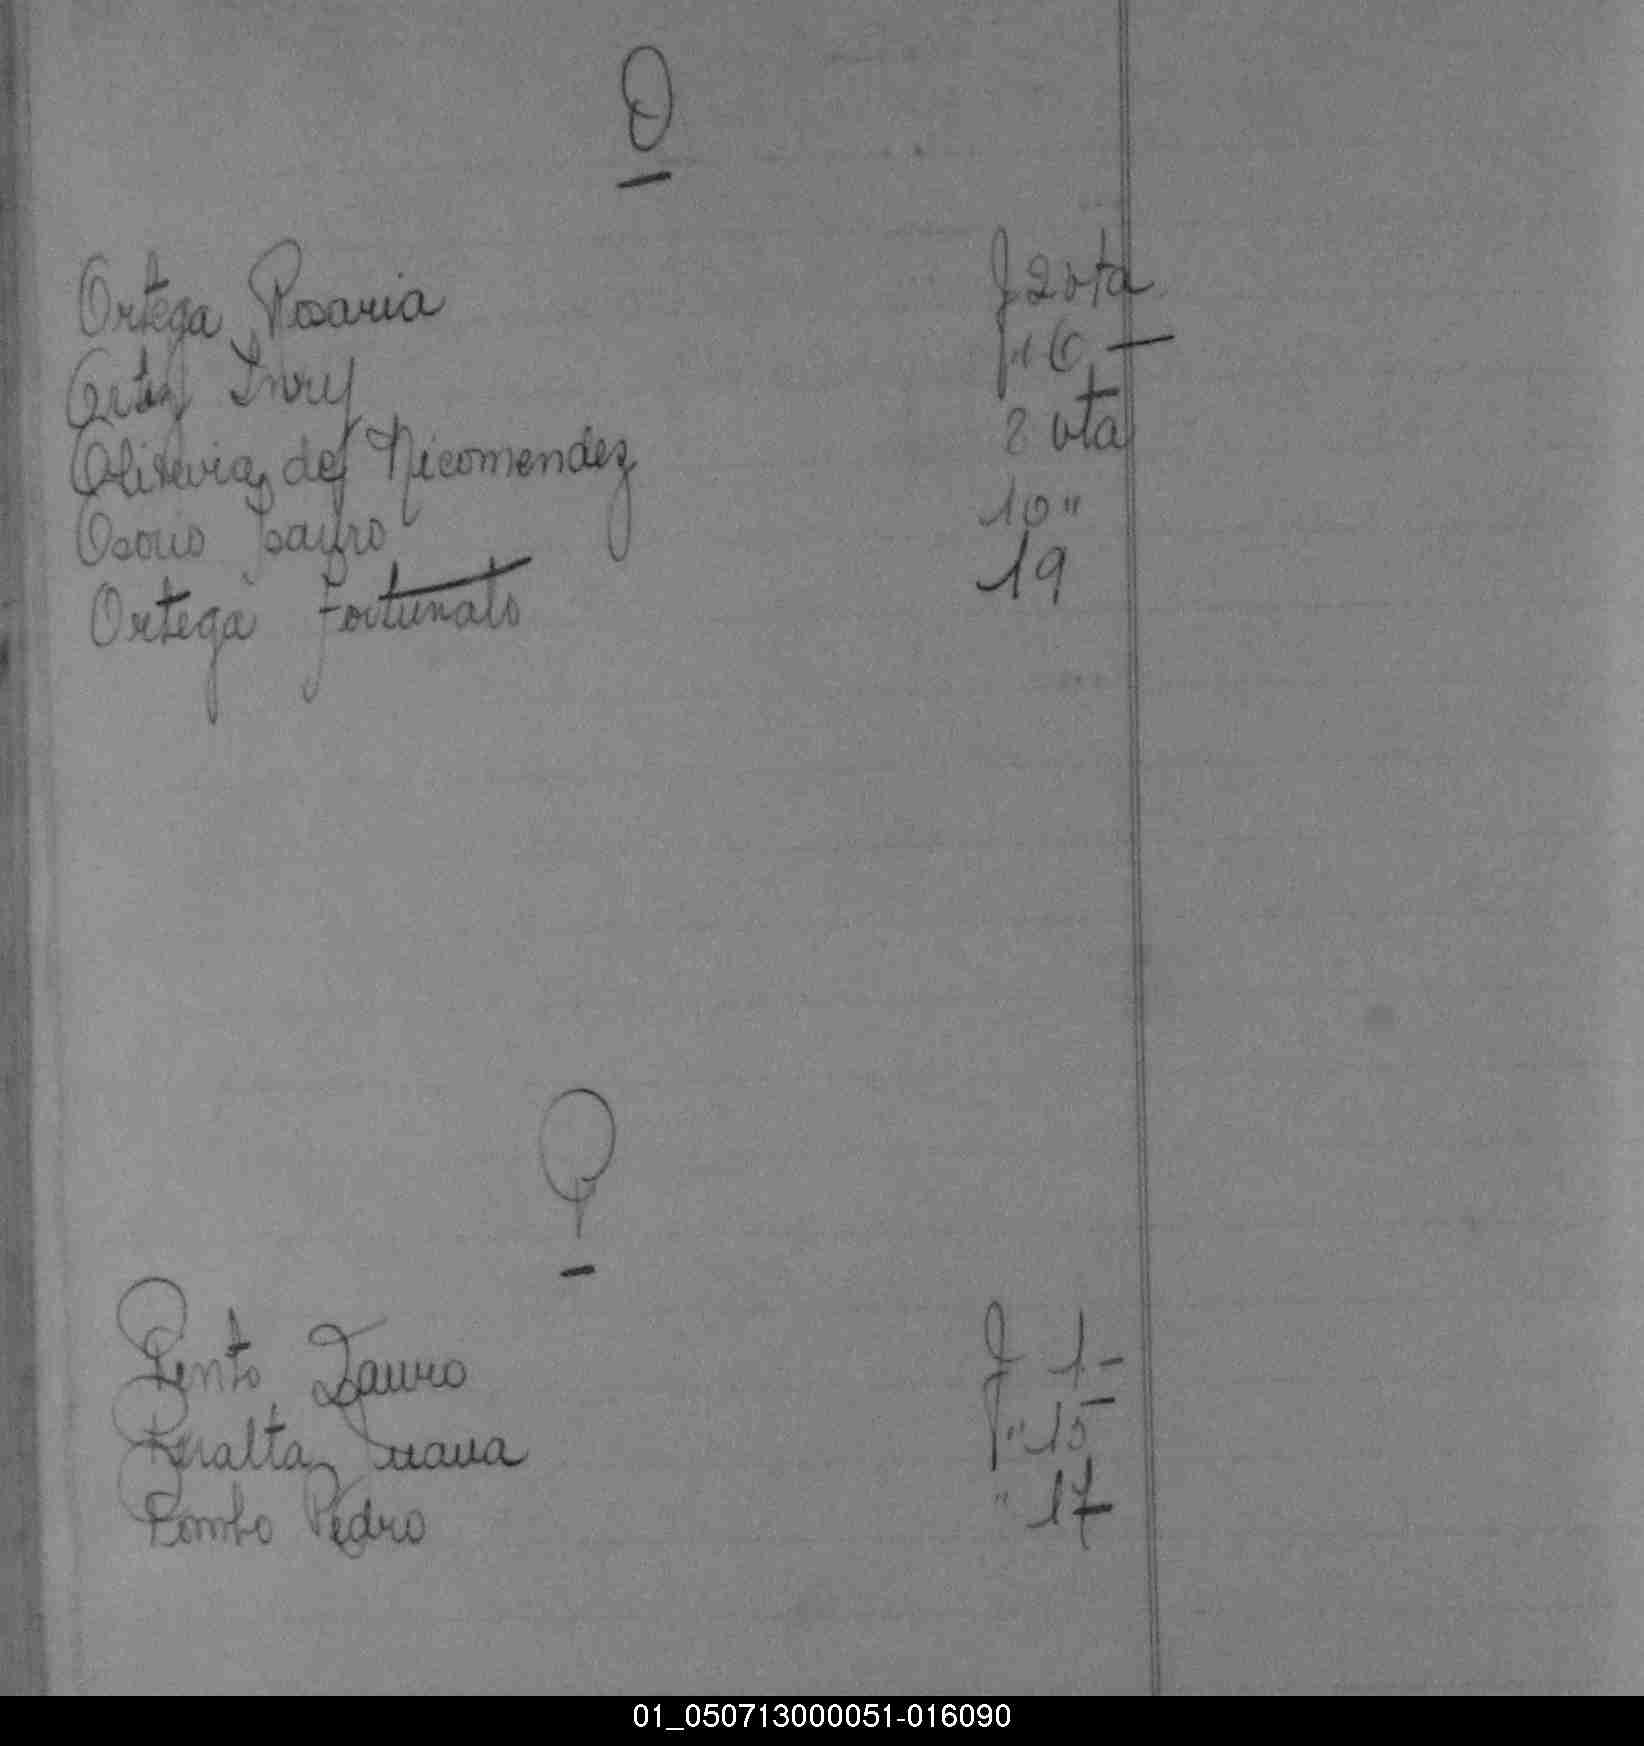 O
Ortega Rosaria f 2 vta
Ortiz f" 6 —
de Nicomendez 2 vta
Osorio 10 "
Ortega Fortunato 19
P
Pinto Lauro f 1 -
Peralta Juana f" 15 -
Pombo Pedro " 17 -
01_050713000051-016090